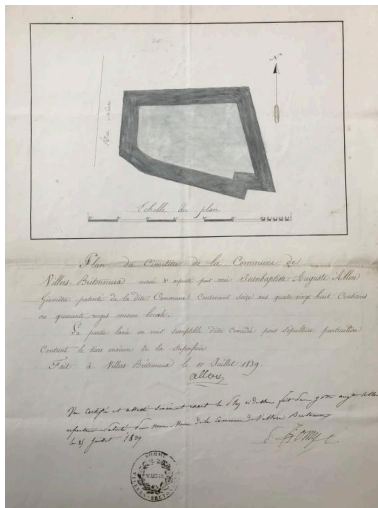 N
Echelle du plan
Plan du Cimetière de la Commune de
Villers Bretonneux mesuré & rapporté par moi Jeanbaptiste Auguste Allou
Géomètre patenté de la dite Commune Contenant Seize ares quatre vingt huit Centiares
ou quarante verges mesure locale.
La partie lavée en noir susceptible d'être Concédée pour Sépulture particulière
Contient le tiers environ de la Superficie
Fait à Villers Bretonneux le 11 Juillet 1839.
Allou
Vu Certifié et attesté Sincère et exact le Plan ci-dessus fait par
par nous Maire de la Commune de Villers Bretonneux
le 25 Juillet 1839